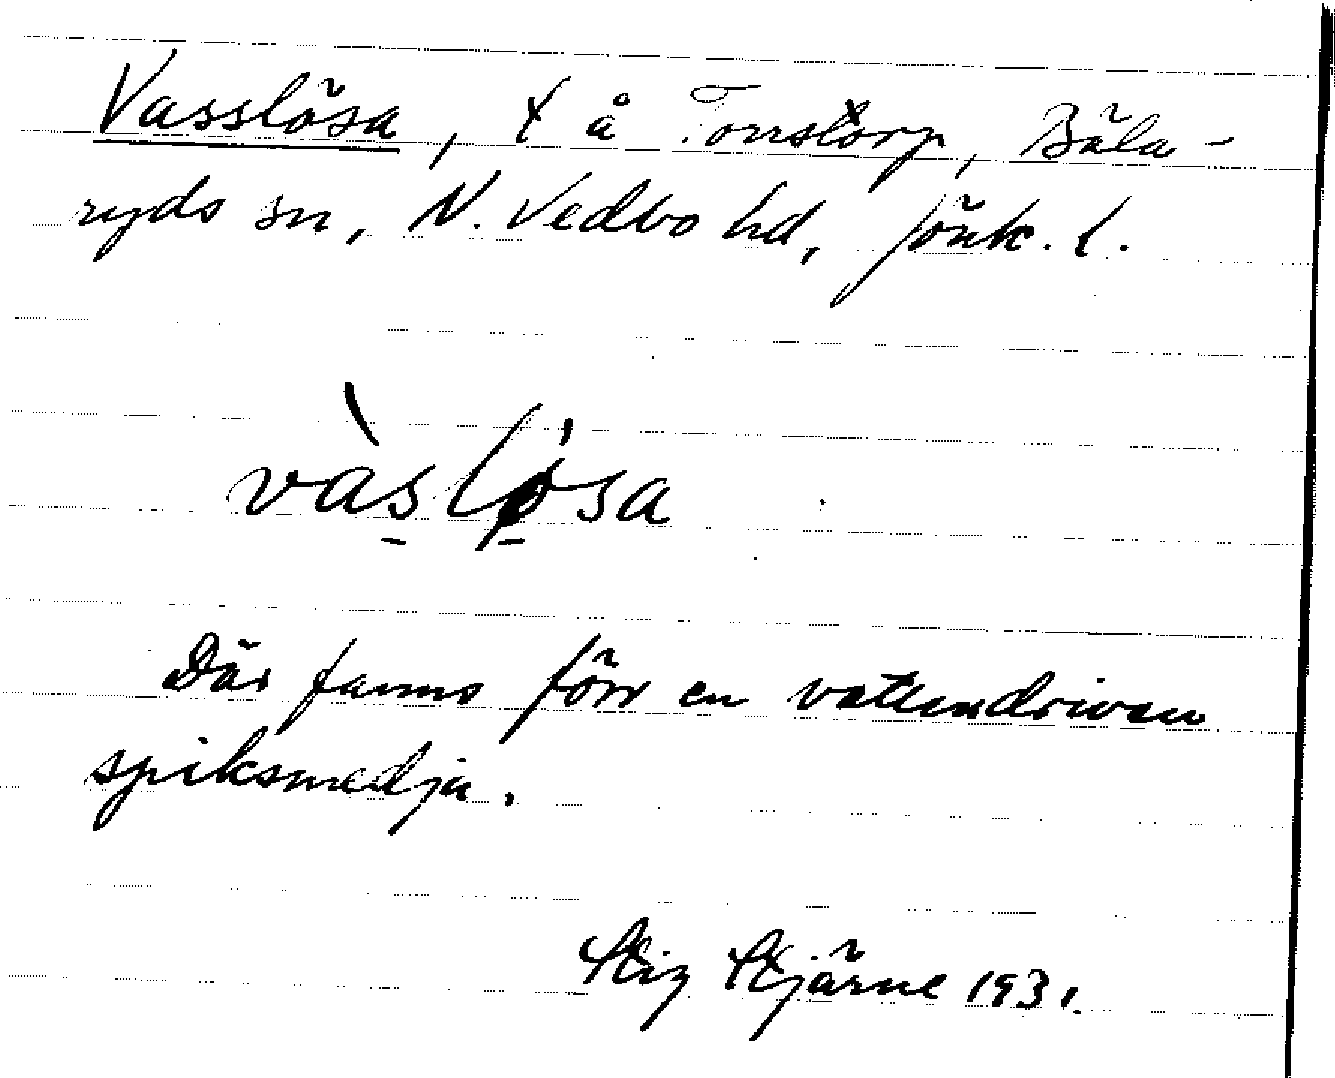 Vasslösa, t å Tonstorp, Bäla-
ryds sn, N. Vedbo hd, Jönk. l.
vàslø̀sa
Där fanns förr en vattendriven
spiksmedja.
Stig Stjärne 1931.